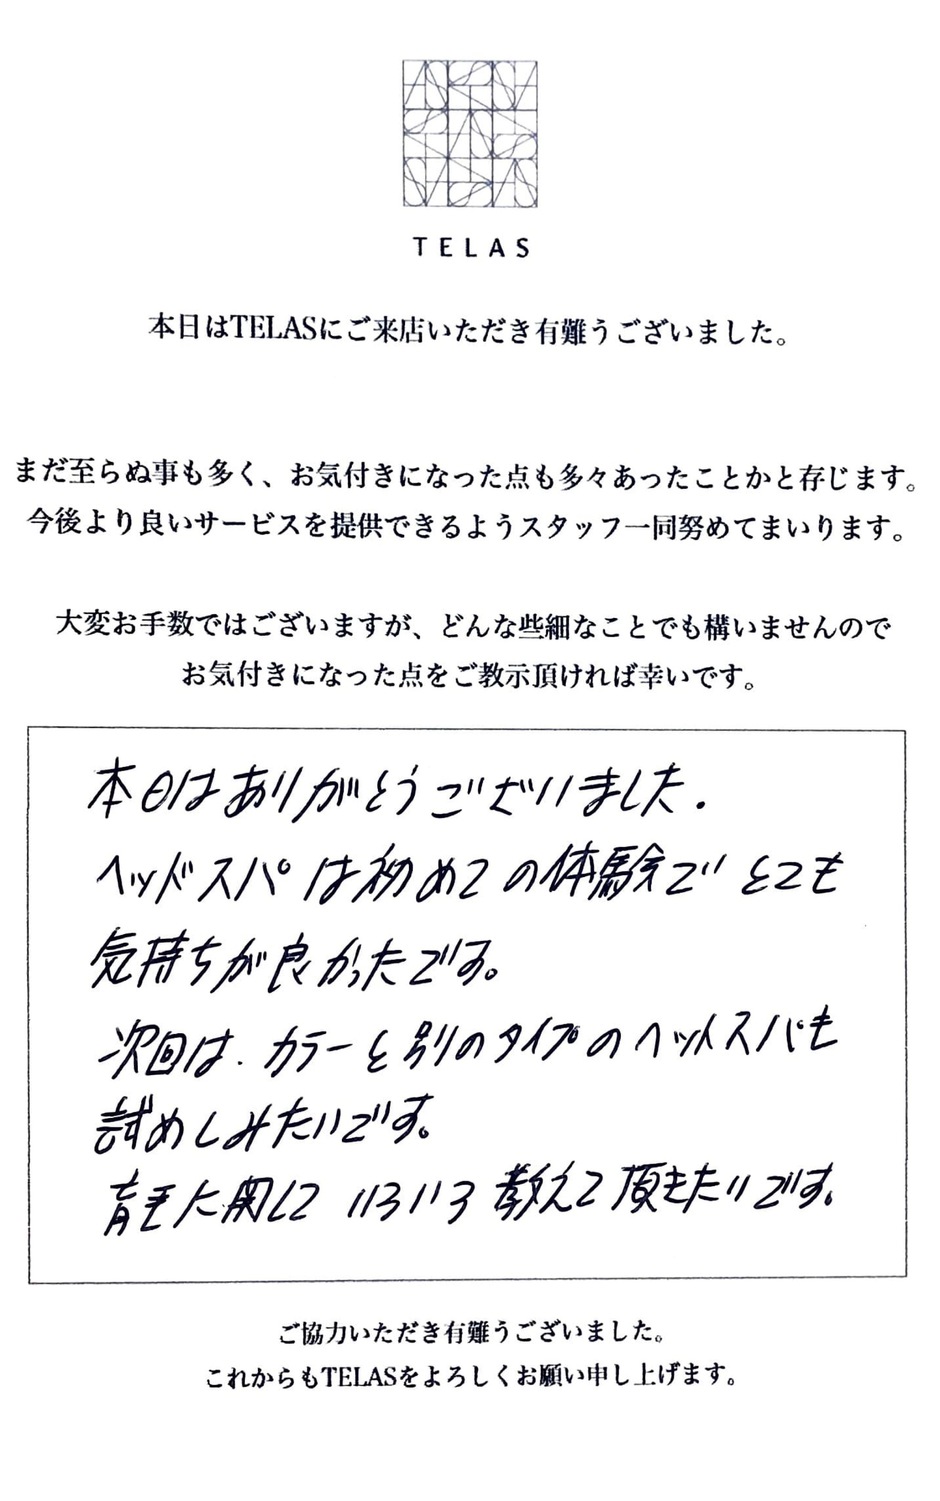 TELAS
本日はTELASにご来店いただき有難うございました。
まだ至らぬ事も多く、お気付きになった点も多々あったことかと存じます。
今後より良いサービスを提供できるようスタッフ一同努めてまいります。
大変お手数ではございますが、どんな些細なことでも構いませんので
お気付きになった点をご教示頂ければ幸いです。
本日はありがとうございました.
ヘッドスパは初めての体験で とても
気持ちが良かったです。
次回は、カラーと別のタイプのヘットスパも
試めしみたいです。
育毛に関して いろいろ教えて頂きたいです。
ご協力いただき有難うございました。
これからもTELASをよろしくお願い申し上げます。